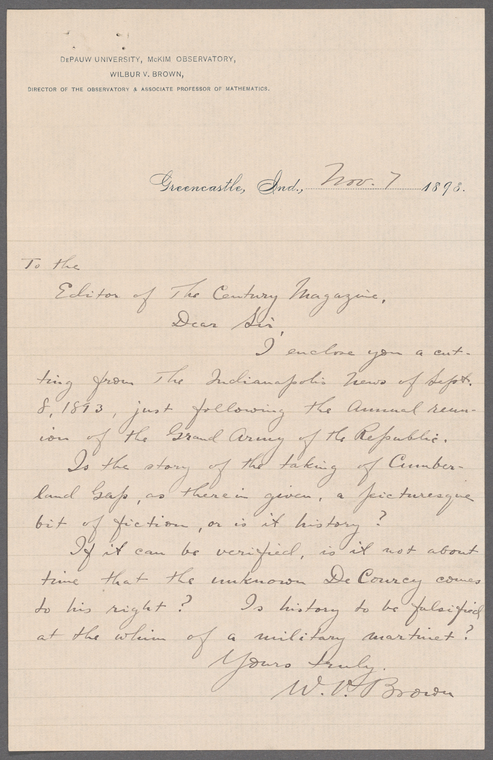 DEPAUW UNIVERSITY, MCKIM OBSERVATORY,
WILBUR V. BROWN,
DIRECTOR OF THE OBSERVATORY & ASSOCIATE PROFESSOR OF MATHEMATICS.
Greencastle, Ind., Nov. 7 1893.
To the
Editor of The Century Magazine,
Dear Sir,
I enclose you a cut-
ting from The Indianapolis News of Sept.
8, 1893, just following the Annual reun-
ion of the Grand Army of the Republic.
Is the story of the taking of Cumber-
land Gap, as therein given, a picturesque
bit of fiction, or is it history?
If it can be verified, is it not about
time that the unknown De Courcy comes
to his right? Is history to be falsified
at the whim of a military martinet?
Yours truly,
W. V. Brown